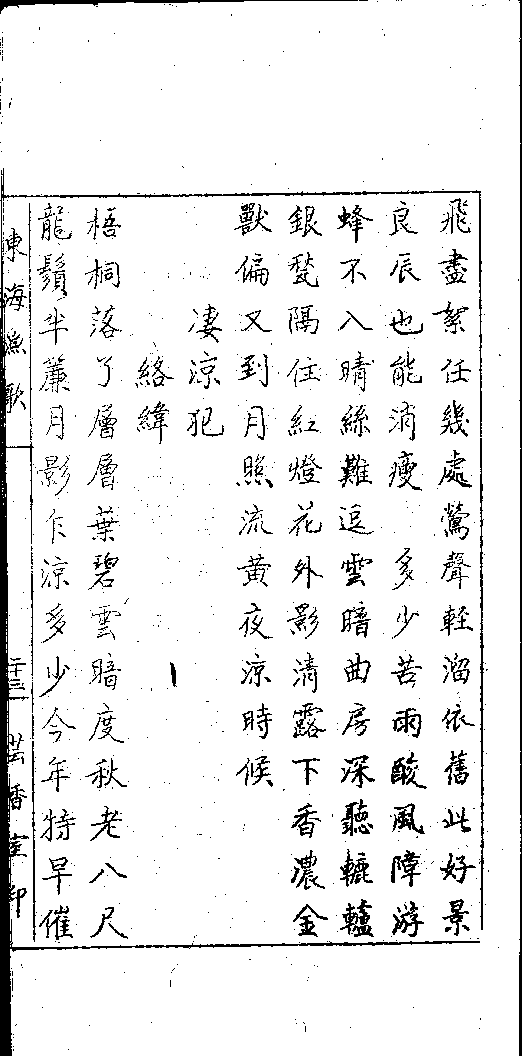 飛盡絮任幾處鶯聲輕溜依舊此好景
良辰也能消瘦　多少苦雨酸風障游
蜂不入晴絲難逗雲暗曲房深聽轆轤
銀甃隔住紅燈花外影清露下香濃金
獸偏又到月照流黃夜涼時候
淒涼犯
絡緯
梧桐落了層層葉碧雲暗度秋老八尺
龍鬚半簾月影乍涼多少今年特早催
東海漁歌
二十三
芸香室印